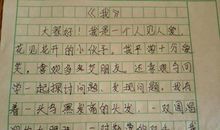 《我》
大家好！我是一个人见人爱，
花见花开的小伙子。我平时十分爱
笑，喜欢多交朋友。还喜欢与同
学一起探讨问题，发现问题。我长
着一头乌黑发亮的头发，一双圆溜